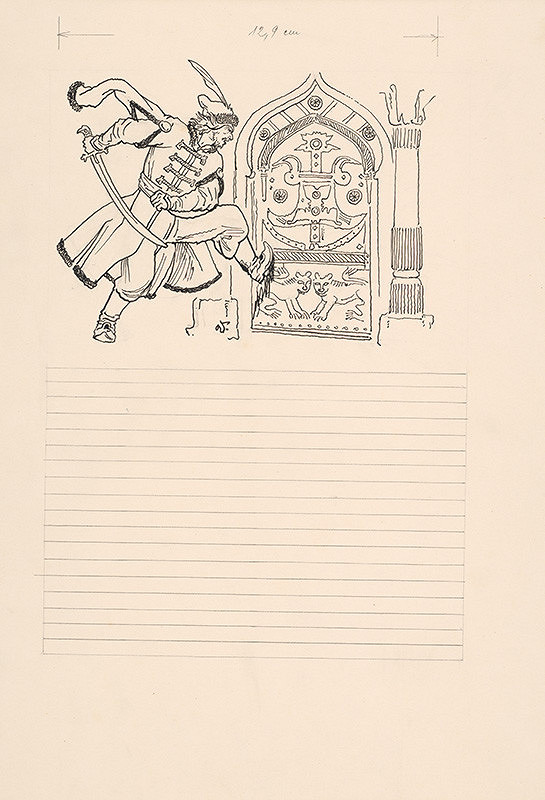 12,9 cm